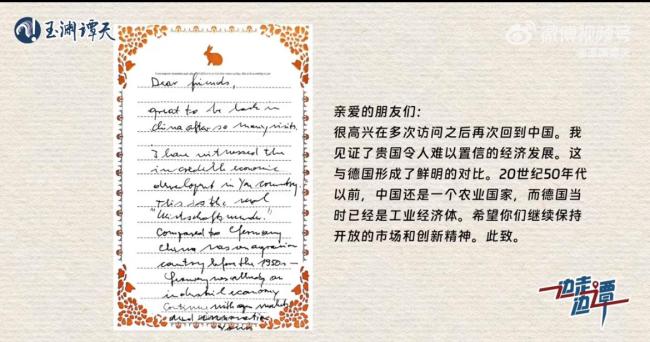 玉渊谭天
微博视频号
Dear friends,
great to be back in
China after so many visits.
I have witnessed the
incredible economic
developent in your country.
This is the real
"Wirtschaftswunder"
Compared to Germany
China was an agrarian
country before the 1950s –
Germany was already an
industrial economy
Continue with open markets
and innovation
Yours
亲爱的朋友们：
很高兴在多次访问之后再次回到中国。我
见证了贵国令人难以置信的经济发展。这
与德国形成了鲜明的对比。20世纪50年代
以前，中国还是一个农业国家，而德国当
时已经是工业经济体。希望你们继续保持
开放的市场和创新精神。此致。
边走边谭